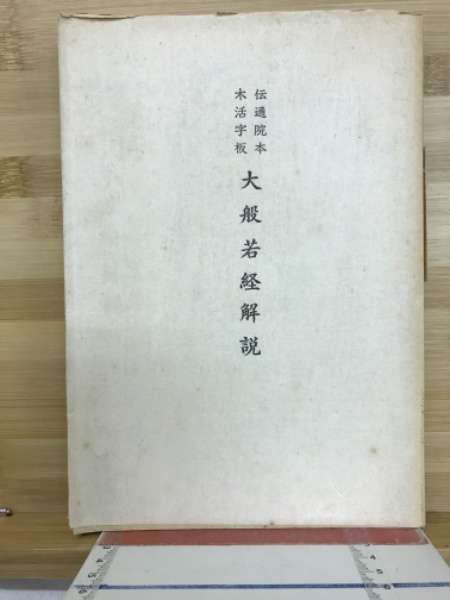 伝通院本
木活字板
大般若経解説